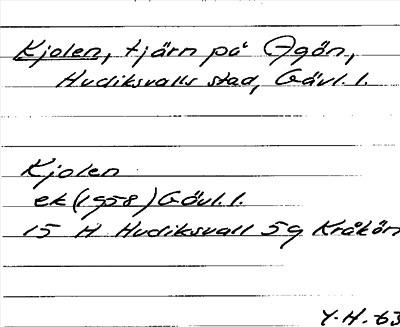 Kjolen, tjärn på Agön,
Hudiksvalls stad, Gävl. l.
Kjolen
ek (1958) Gävl. l.
15 H Hudiksvall 5g Kråkön
Y. H. 63